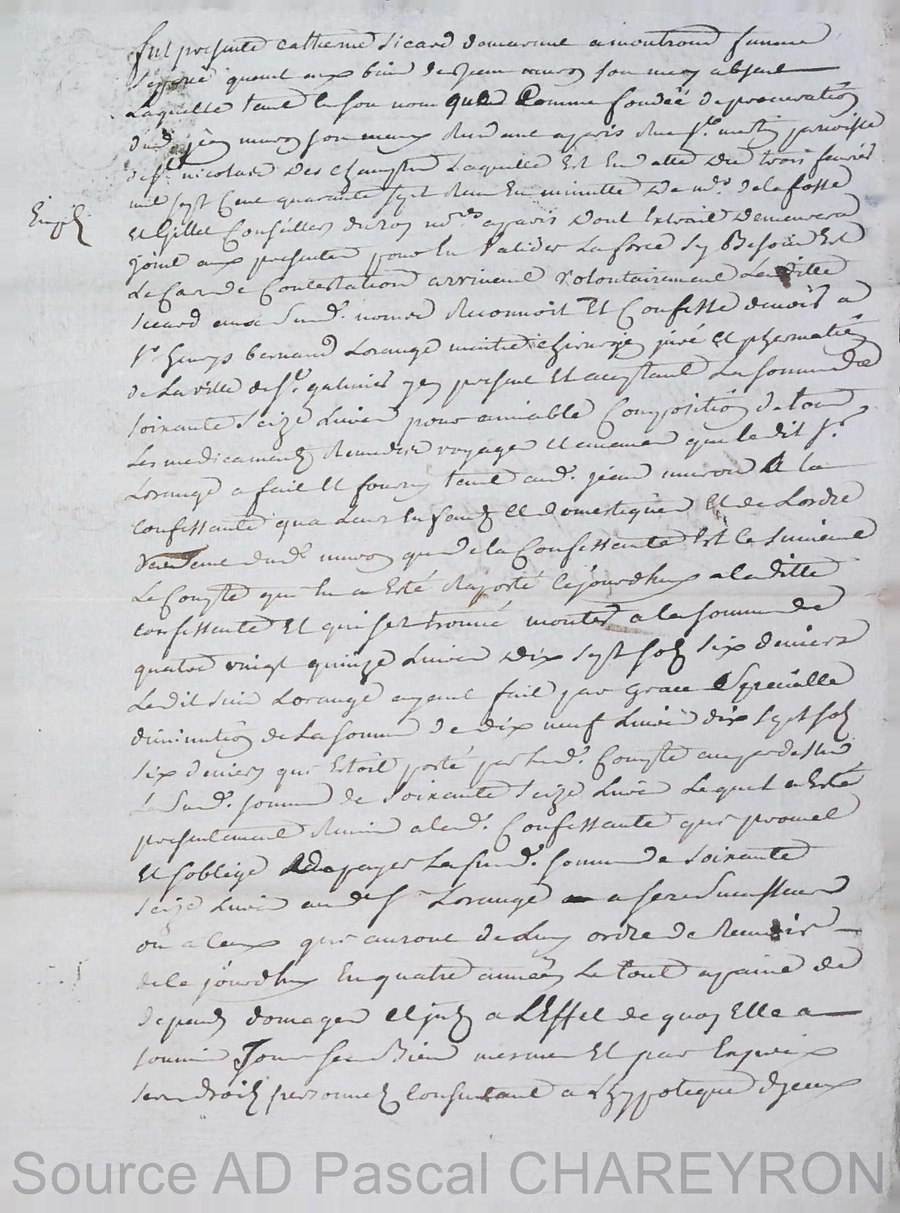 fut presente catherine Sicard demeurant a montrond femme
separée quant aux bien de Jean muron son mary absent
Laquelle tant En son nom que Comme fondée de procuration
dud. jean muron son mary Residant a paris Rue St. martin parroisse
de St. nicolas Des Champs Laquelle Est En datte Du trois fevrier
mil sept Cent quarante sept Receu En minutte De me. De la fosse
Et Gillet Consillers du Roy nores. a paris Dont Extrait Demeurera
joint aux presentes pour En Valider La force Sy Besoin Est
Le Cas de Contestation arrivent Volontairement Laditte
Sicard aux Susd. noms Reconnoit Et Confesse devoir a
Sr. heurys bernard Lorange maitre chirurgien juré Et pharmatien
de La ville de St. galmier y present Et acceptant La somme de
soixante Seize Livres pour amiable Composition de tous
Les medicaments Remedes voyages Et que ledit Sr.
Lorange a fait Et fourny tant aud. jean muron & a la
confessante qua Leurs Enfands Et domestiques Et de Lordre
dud. muron que de la Confessante Et Ce Suivant
Le Compte qui luy a Esté Raporté cejourdhuy a laditte
confessante Et qui sest trouvé monter a la somme de
quatre vingt quinze Livres Dix Sept sols six deniers
Ledit sieur Lorange ayant fait par Grace Specialle
diminution de La somme de dix neuf Livres dix sept sols
six deniers qui Estoit porté par Led. Compte au par dessus
La Susd. somme de Soixante Seize Livres Lequel a Esté
presentement Remis a lad. Confessante qui promet
Et soblige De payer La susd. somme de soixante
Seize Livres aud. Sr Lorange a ses Successeurs
ou a Ceux qui auront de Luy ordre de Recevoir
de Ce jourdhuy En quatre années Le tout a paine de
depends domages Et jnts a LEffet de quoy Elle a
soumis Tous ses Biens mesmes Et par Expres
ses droits personnels Consistant a Lhypoteque dyceux
Source AD Pascal CHAREYRON